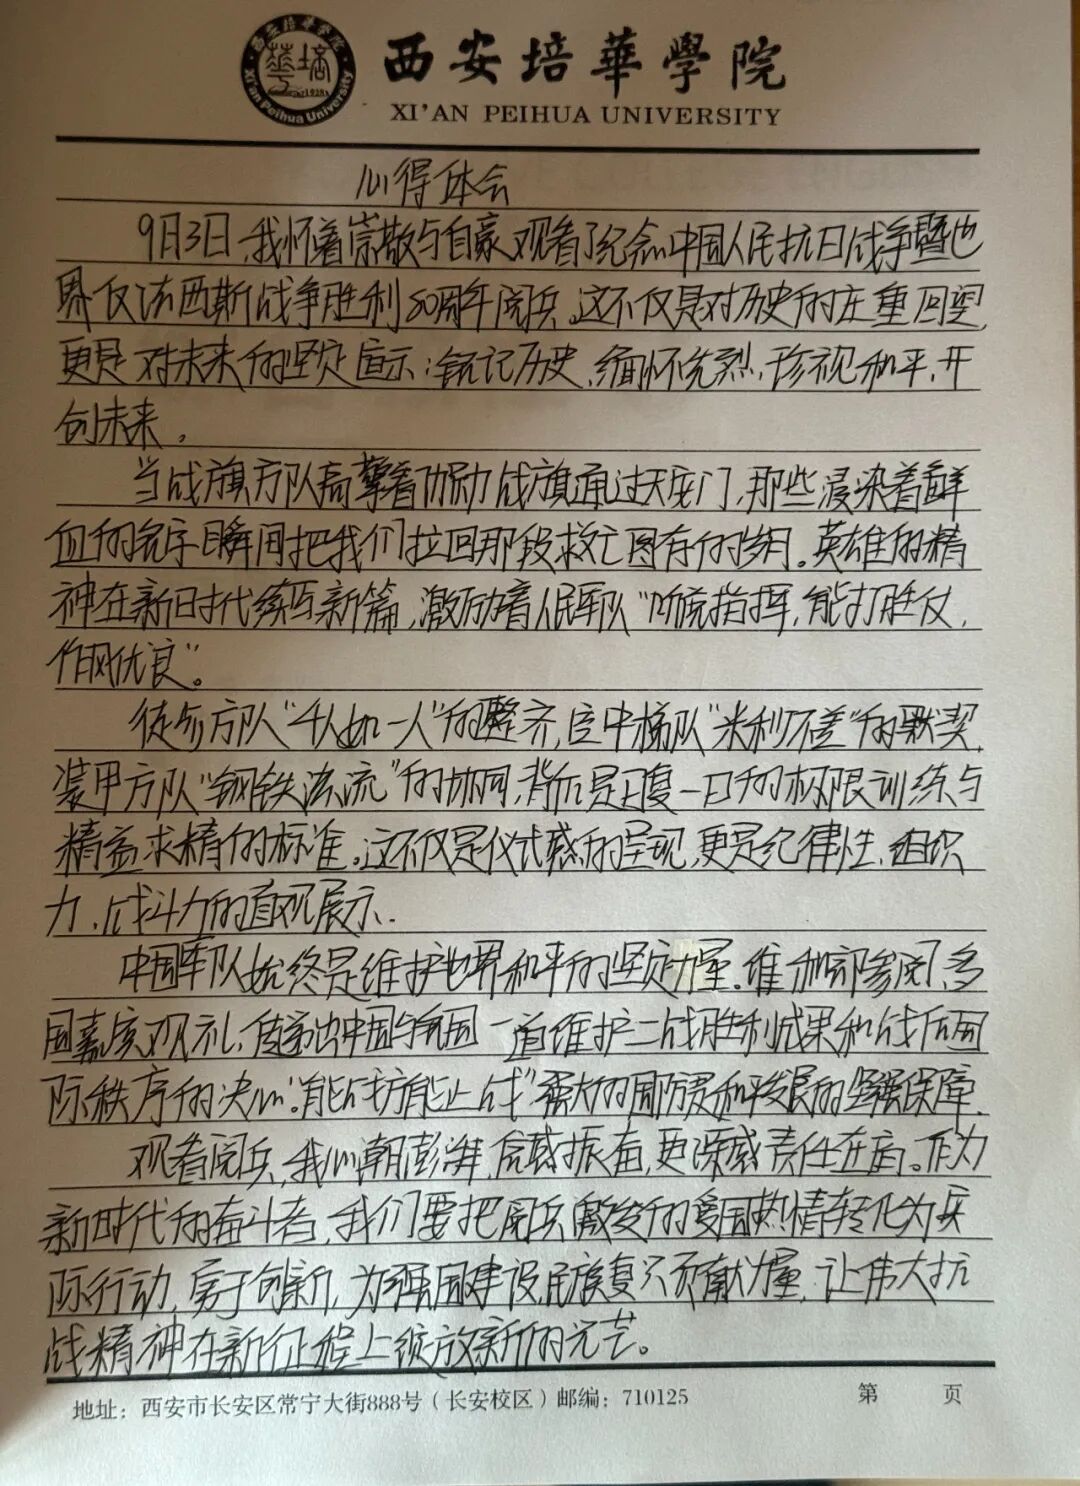 西安培華學院
XI'AN PEIHUA UNIVERSITY
西安培華学院
Xi'an Peihua University
1928
心得体会
9月3日,我怀着崇敬与自豪观看了纪念中国人民抗日战争暨世
界反法西斯战争胜利80周年阅兵。这不仅是对历史的庄重回望,
更是对未来的坚定宣示:铭记历史,缅怀先烈,珍视和平,开
创未来。
当战旗方队高擎着功勋战旗通过天安门,那些浸染着鲜
血的名字瞬间把我们拉回那段救亡图存的岁月。英雄的精
神在新时代续写新篇,激励着人民军队“听党指挥,能打胜仗,
作风优良”。
徒步方队“千人如一人”的整齐,空中梯队“米秒不差”的默契,
装甲方队“钢铁洪流”的协同,背后是日复一日的极限训练与
精益求精的标准。这不仅是仪式感的呈现,更是纪律性、组织
力、战斗力的直观展示.
中国军队始终是维护世界和平的坚定力量。维和部参阅、多
国嘉宾观礼,传递出中国与各国一道维护二战胜利成果和战后国
际秩序的决心。“能战方能止战”强大的国防是和平发展的坚强保障.
观看阅兵,我心潮澎湃,倍感振奋,更深感责任在肩。作为
新时代的奋斗者,我们要把阅兵激发的爱国热情转化为实
际行动,勇于创新,为强国建设,民族复兴贡献力量,让伟大抗
战精神在新征程上绽放新的光芒。
地址:西安市长安区常宁大街888号(长安校区)邮编:710125
第 页